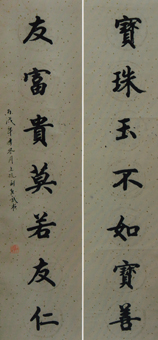 寶珠玉不如寶善
友富貴莫若友仁